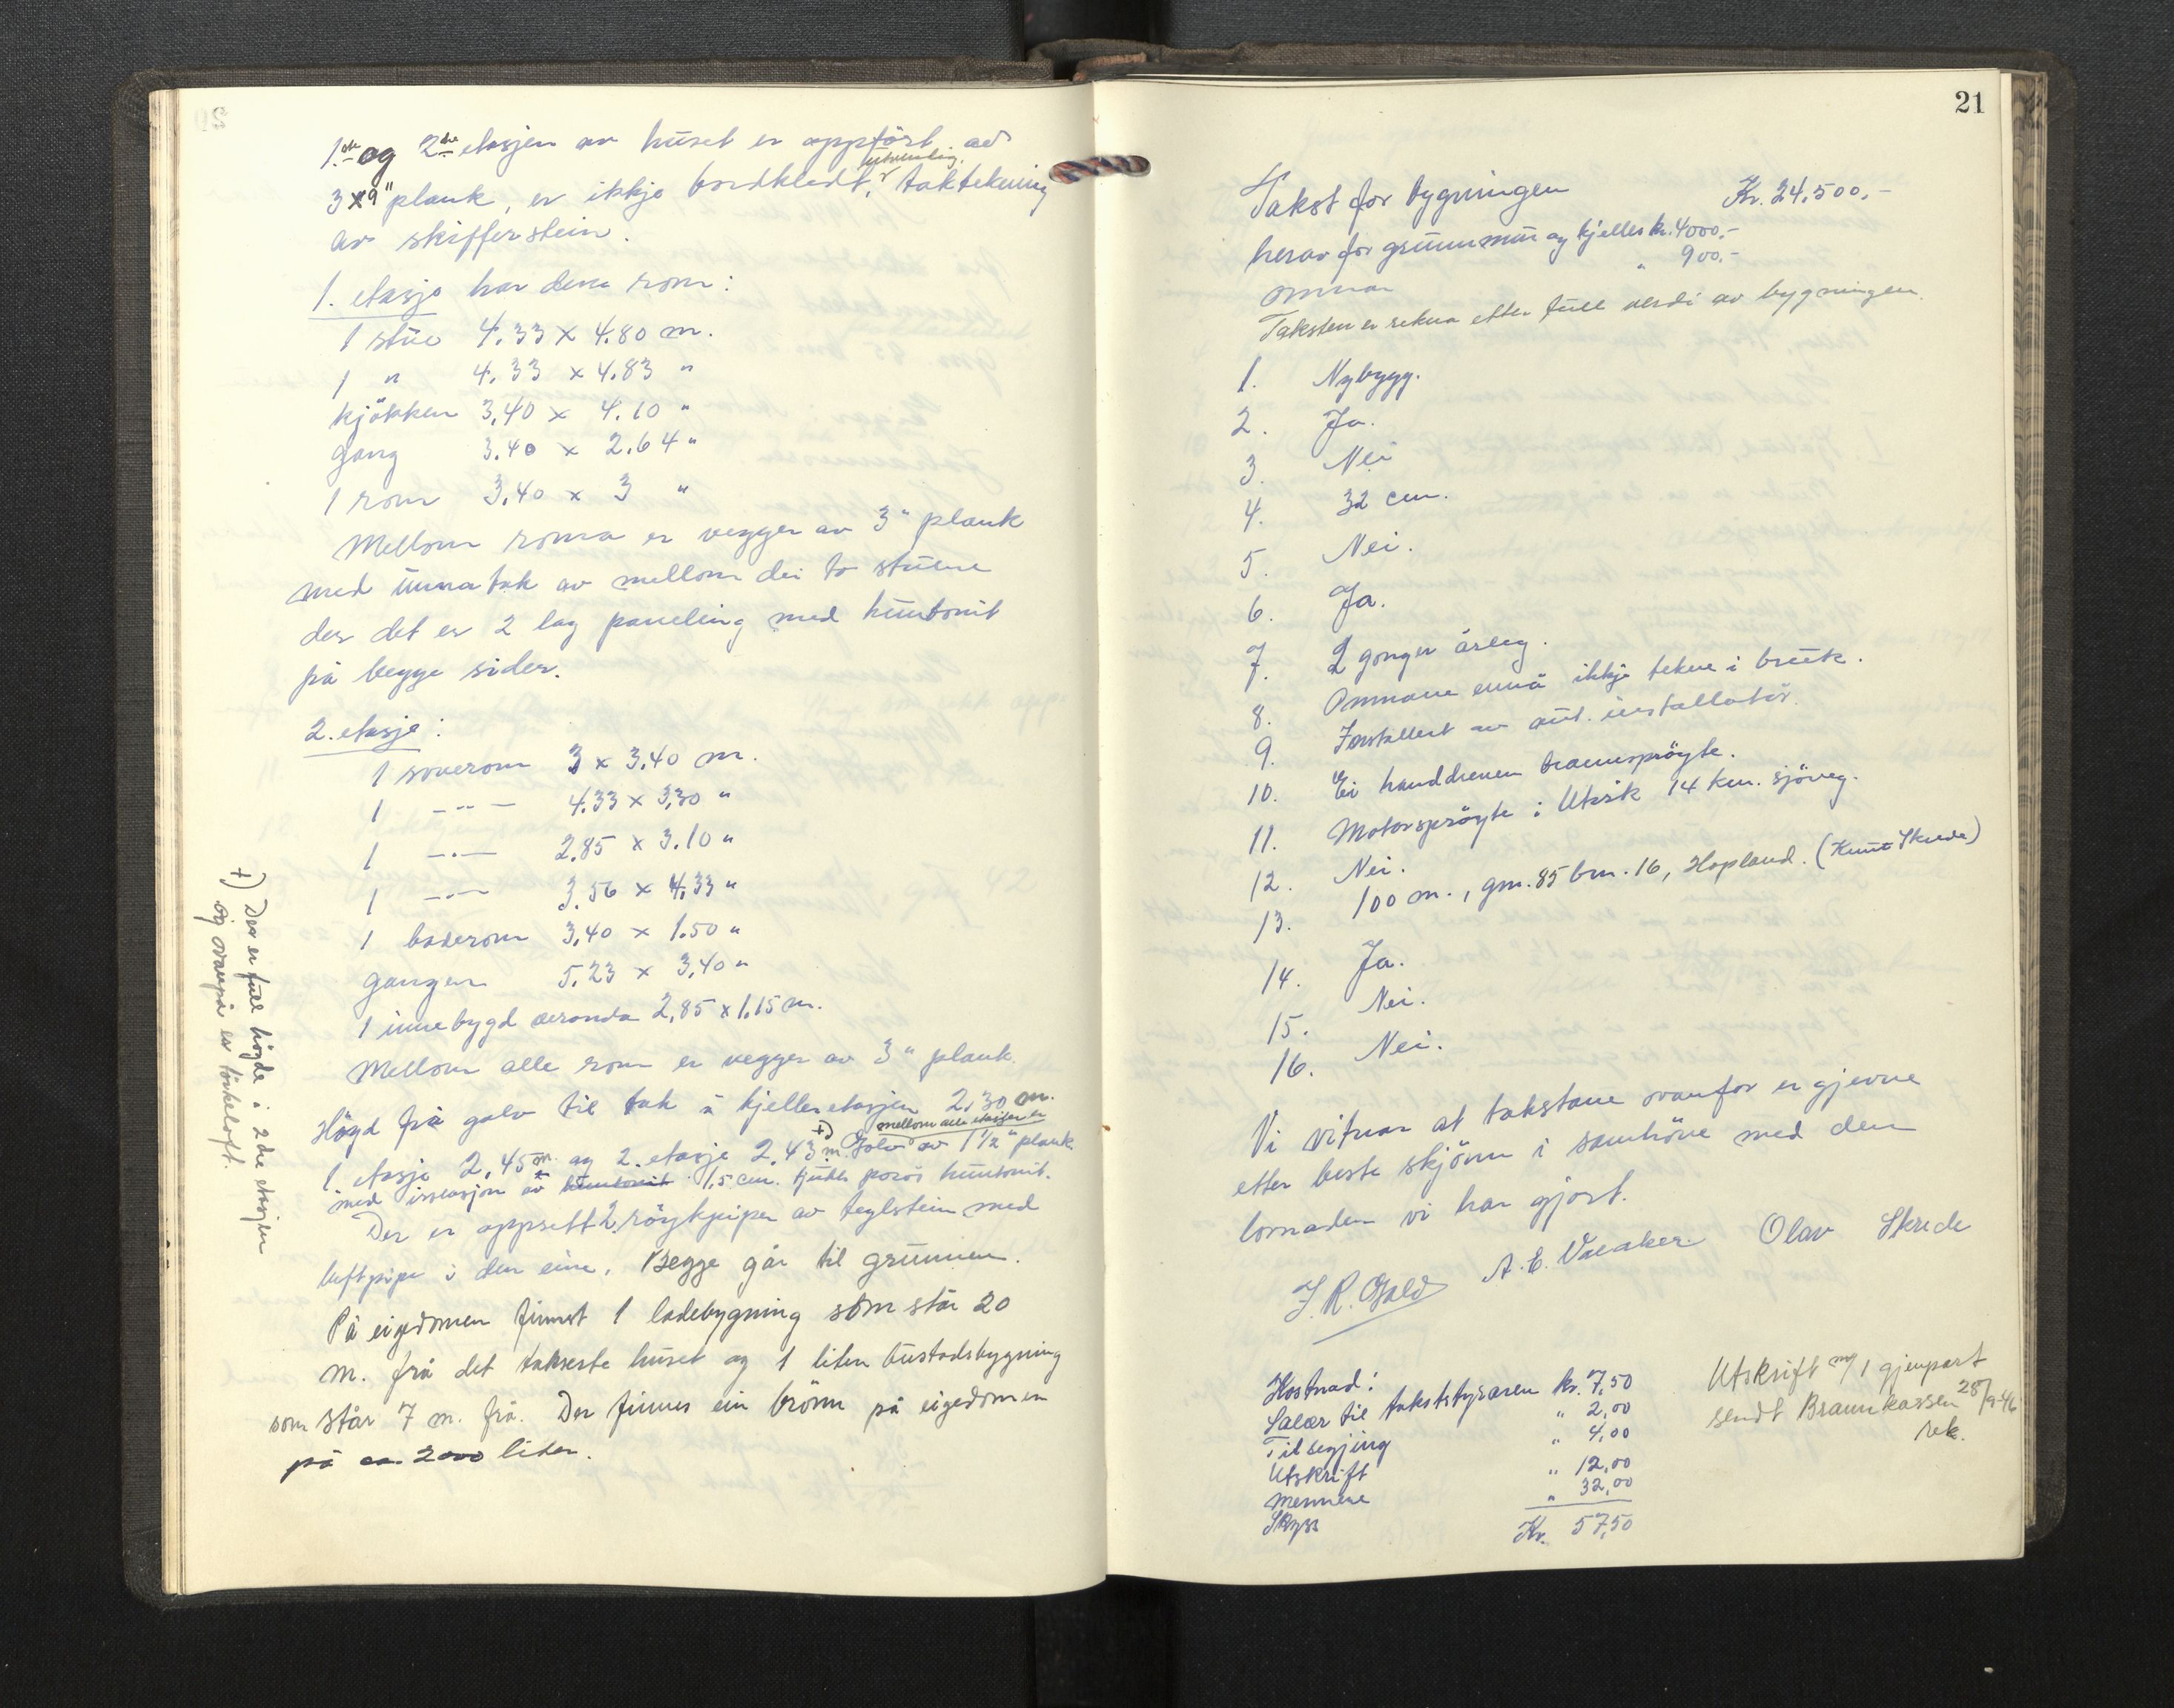 1ste og 2dre etasjen av huset er oppført av
3 x 9" plank, er ikkje bordkledt, utvendig. taktekning
av skifferstein.
1. etasje har desse rom:
1 stue 4.33 x 4.80 m.
1 " 4.33 x 4.83 "
kjøkken 3,40 x 4.10 "
gang 3.40 x 2.64 "
1 rom 3,40 x 3 "
Mellom roma er vegger av 3" plank
med unnatak av mellom dei to stuene
der det er 2 lag paneling med huntonit
på begge sider.
2. etasje:
1 soverom 3 x 3.40 m.
1 -"- 4.33 x 3,30 "
1 -"- 2.85 x 3.10 "
1 -"- 3.56 x 4,33 "
1 baderom 3,40 x 1.50 "
gangen 5.23 x 3,40 "
1 innebygd veranda 2,85 x 1,15 m.
Mellom alle rom er vegger av 3" plank.
Høgd frå golv til tak i kjelleretasjen 2,30 m.
1. etasje 2,45 m. og 2. etasje 2,43 m. +) Golv mellom alle etasjer er av 1½" plank
med isolasjon av huntonit 1,5 cm. tjukk porøs huntonit.
Der er oppsett 2 røykpiper av teglstein med
luftpipe i den eine. Begge går til grunnen.
På eigedomen finnst 1 ladebygning som står 20
m. frå det takserte huset og 1 liten bustadsbygning
som står 7 m. frå. Der finnes ein brønn på eigedomen
på ca. 2000 liter.
+) Der er full høgde i 2dre etasjen
og ovanpå er tørkeloft.
21
Takst for bygningen Kr. 24.500,-
herav for grunnmur og kjeller kr. 4000,-
omnar " 900.-
Taksten er rekna etter full verdi av bygningen.
1. Nybygg.
2. Ja.
3. Nei
4. 32 cm.
5. Nei.
6. Ja.
7. 2 gonger årleg.
8. Omnane ennå ikkje tekne i bruk.
9. Installert av aut. installatør.
10. Ei handdreven brannsprøyte.
11. Motorsprøyte i Utvik 14 km. sjøveg.
12. Nei.
13. 100 m., gm. 85 bm. 16, Hopland. (Knut Skrede)
14. Ja.
15. Nei.
16. Nei.
Vi vitnar at takstane ovanfor er gjevne
etter beste skjønn i samhøve med den
lovnaden vi har gjort.
J. R. Gald A. E. Vaaaker Olav Skrede
Kostnad:
Salær til takststyraren kr. 7,50
Tilsegjing " 2,00
Utskrift " 4,00
Mennene " 12,00
Skyss " 32,00
Kr. 57,50
Utskrift m/ 1 gjenpart
sendt Brannkassen 28/9-46
rek.